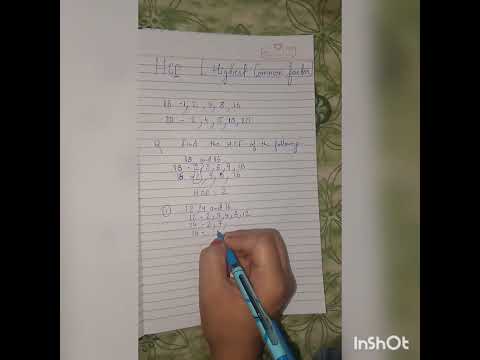 HCF | Highest Common factor
16 - 1, 2, 4, 8, 16
20 - 2, 4, 5, 10, 20
Q Find the HCF of the following
18 and 16
18 - 2, 3, 6, 9, 18
HCF = 2
12, 14 and 16
12 - 2, 3, 4, 6, 12
14 - 2, 7,
16 -
InShOt